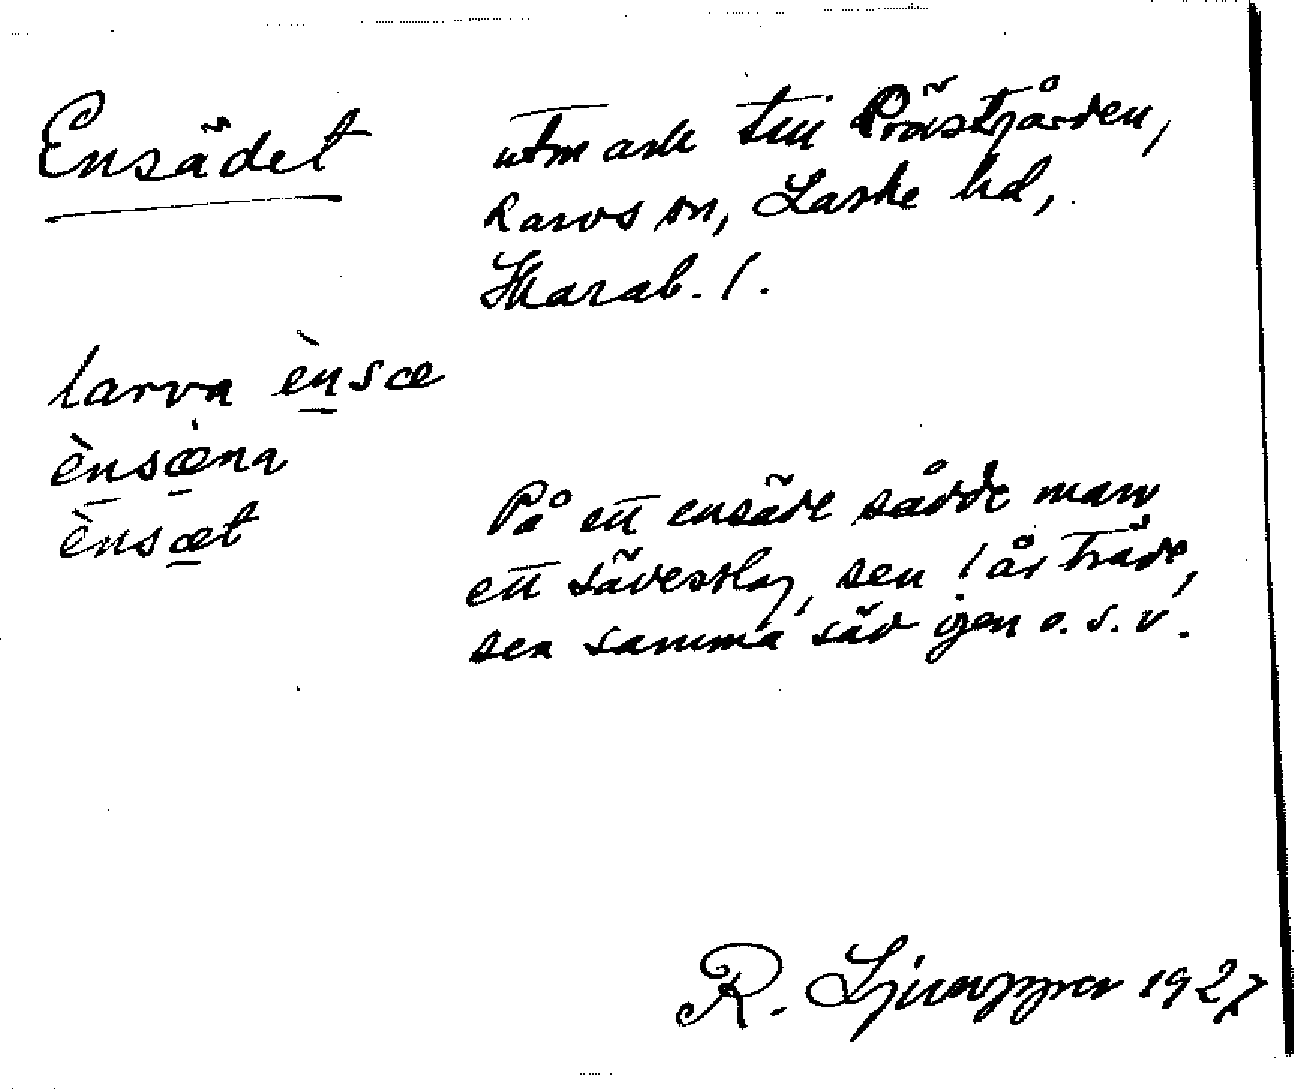 Ensädet
utmark till Prästgården,
Larvs sn, Laske hd,
Skarab. l.
larva ènsæ
ènsæ̀na
ènsæt
På ett ensäde sådde man
ett sädesslag, sen 1 år träde,
sen samma säd igen o. s. v.
R. Ljunggren 1927